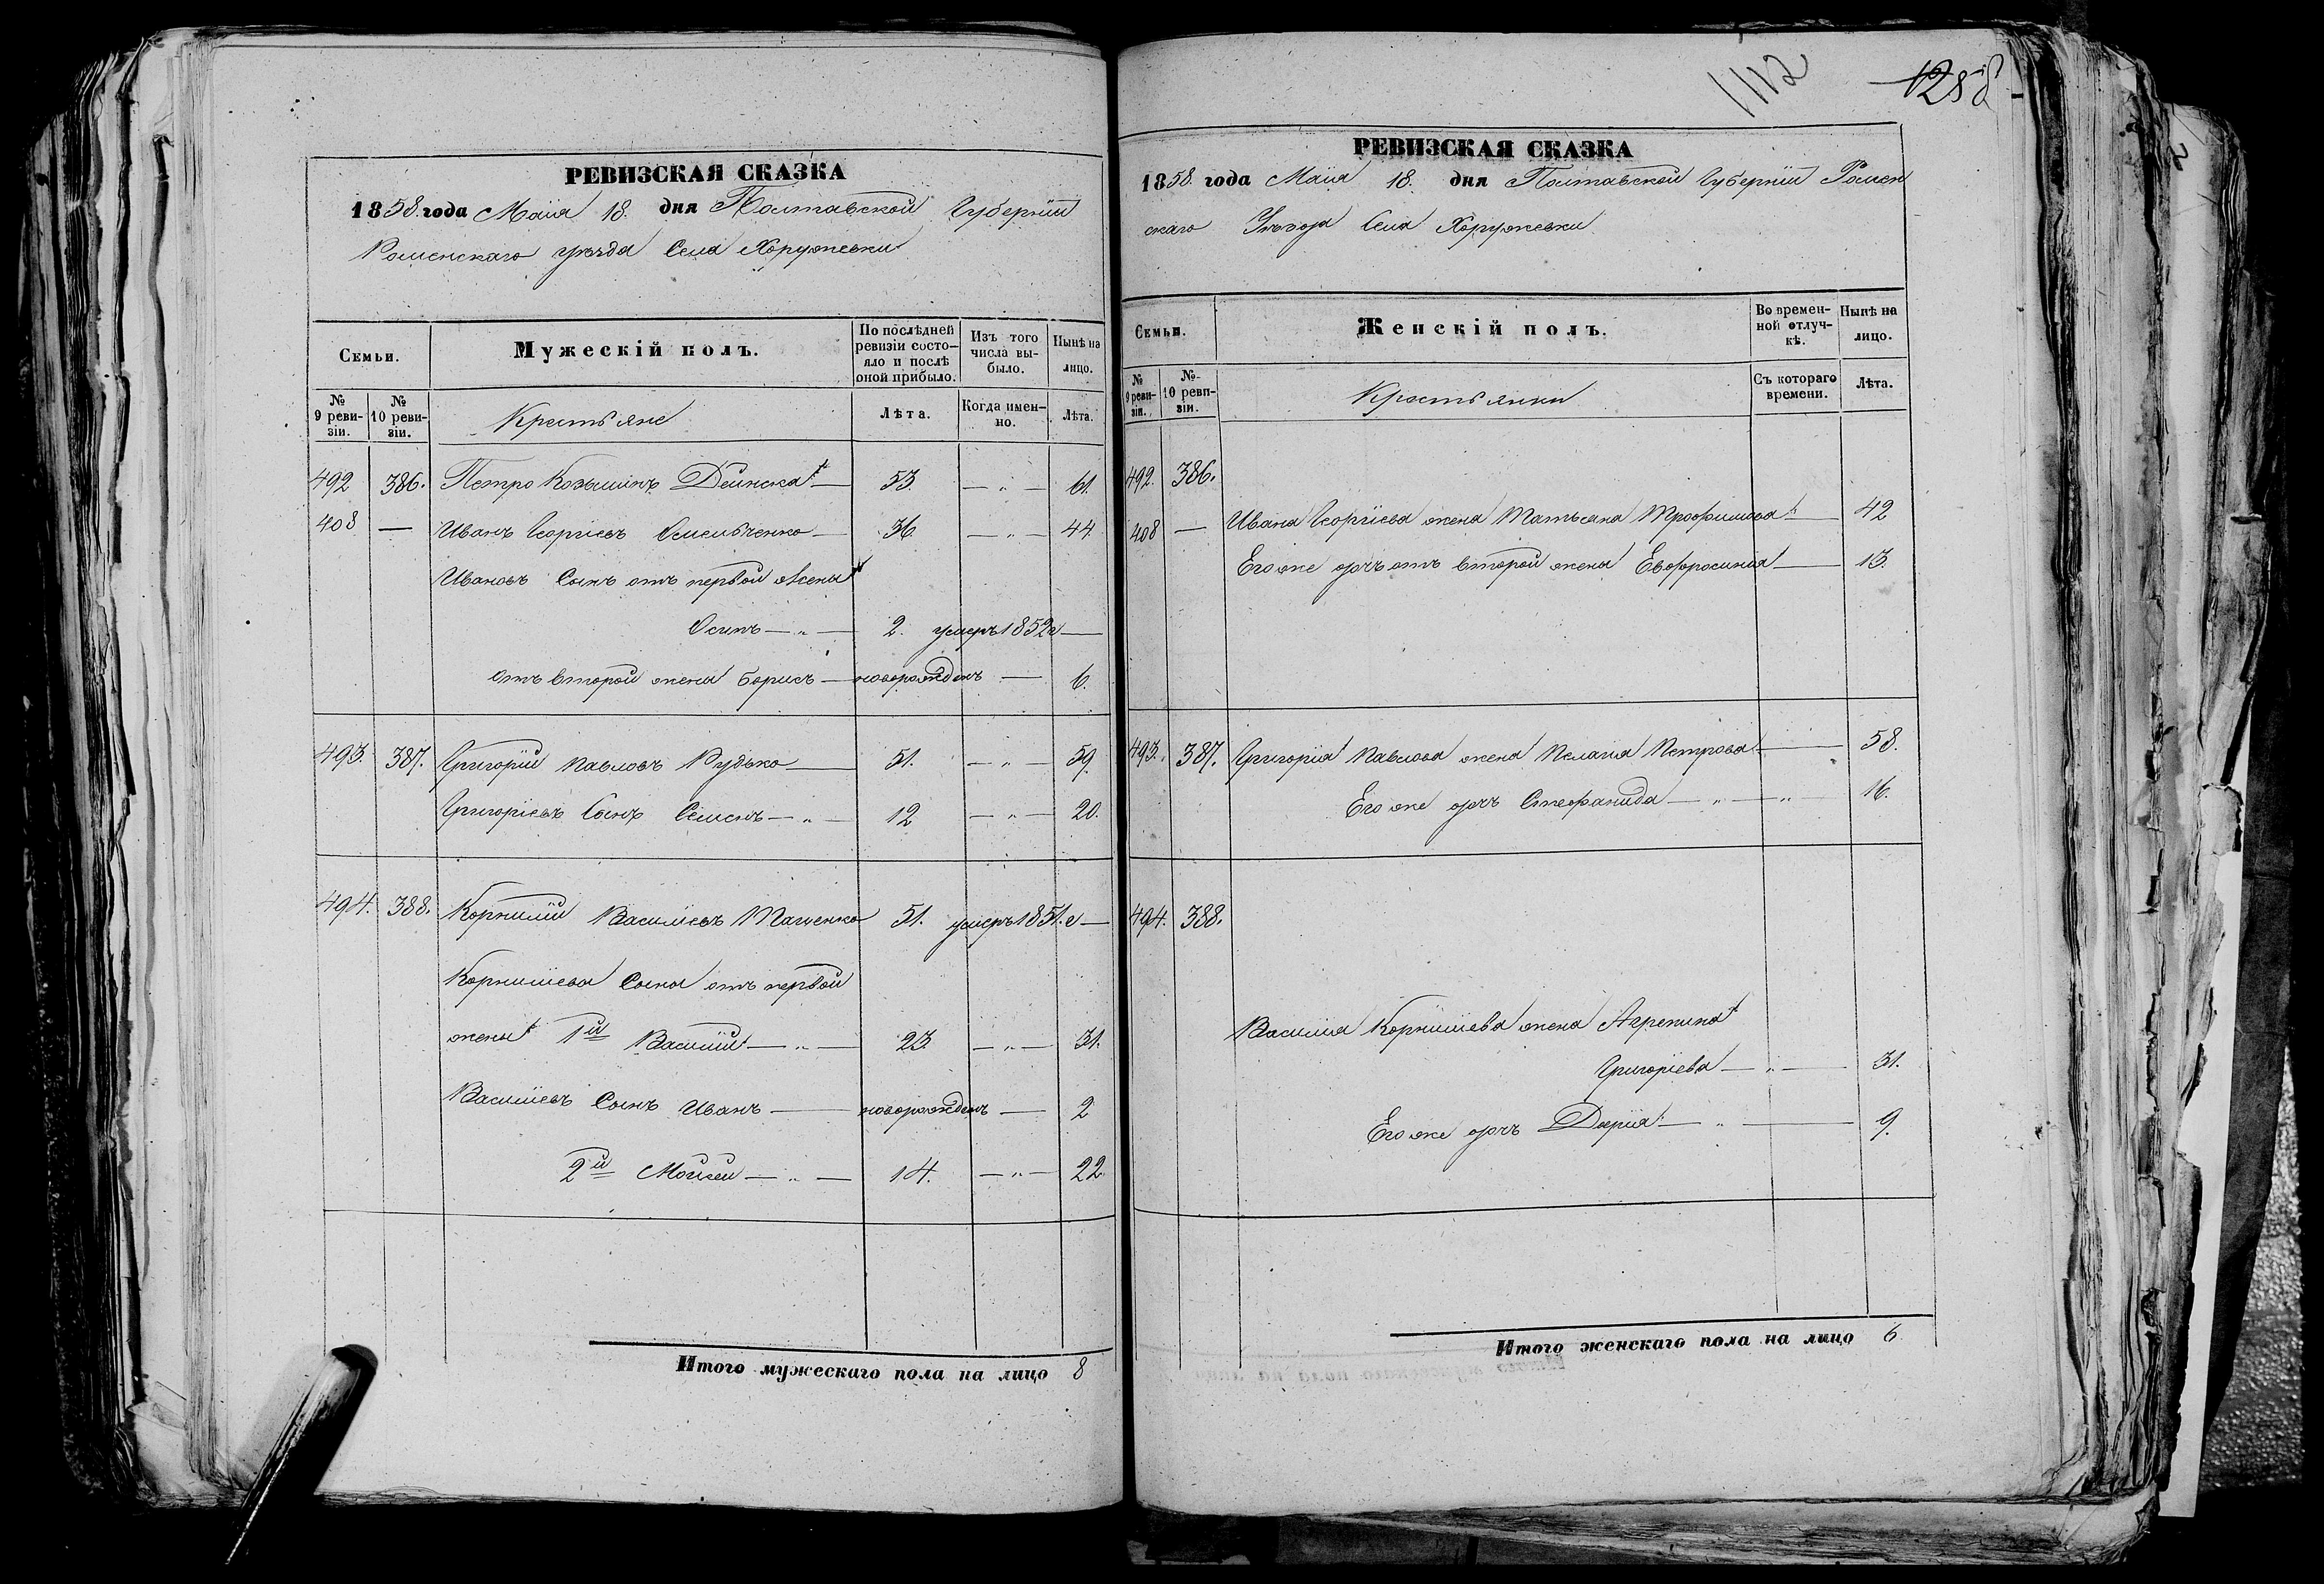 РЕВИЗСКАЯ СКАЗКА
1858. года Маія 18. дня Полтавской Губерніи
Роменскаго уѣзда Села Хоружевки
Семьи. Мужескій полъ. По послѣдней ревизіи состо-яло и послѣ оной прибыло. Изъ того числа вы-было. Нынѣ на лицо.
№ 9 реви-зіи. № 10 реви-зіи. Крестьяне Лѣта. Когда имен-но. Лѣта.
492 386. Петро Козьминъ 53. — „ — 61.
408 — Иванъ Георгіевъ Емельченко — 36. — „ — 44.
Ивановъ Сынъ отъ первой жены
Осипъ — „ — 2. умеръ 1852 г —
отъ второй жены Борисъ — новорожденъ — 6.
493. 387. Григорій Павловъ Рудько — 51. — „ — 59.
Григоріевъ Сынъ Семенъ — „ — 12 — „ — 20.
494. 388. Корнилій Василіевъ Тащенко 51. умеръ 1851. г —
Корниліева Сына отъ первой
жены 1й Василій — „ — 23. — „ — 31.
Василіевъ Сынъ Иванъ — новорожденъ — 2
2й Мойсей — „ — 14. — „ — 22.
Итого мужескаго пола на лицо 8
1112
1258
РЕВИЗСКАЯ СКАЗКА
1858. года Маія 18. дня Полтавской Губерніи Ромен
скаго Уѣзда Села Хоружевки
Семьи. Женскій полъ. Во времен-ной отлуч-кѣ. Нынѣ на лицо.
№ 9 реви-зіи. № 10 реви-зіи. Крестьянки Съ котораго времени. Лѣта.
492. 386.
408 — Ивана Георгіева жена Татьяна Трофимова — 42
Его же дочь отъ второй жены Евфросинія — 13.
493. 387. Григорія Павлова жена Пелагія Петрова — 58.
Его же дочь Стефанида — „ — „ — 16.
494. 388.
Василія Корниліева жена Агрепина
Григоріева — „ — 31.
Его же дочь Дарія — „ — 9.
Итого женскаго пола на лицо 6